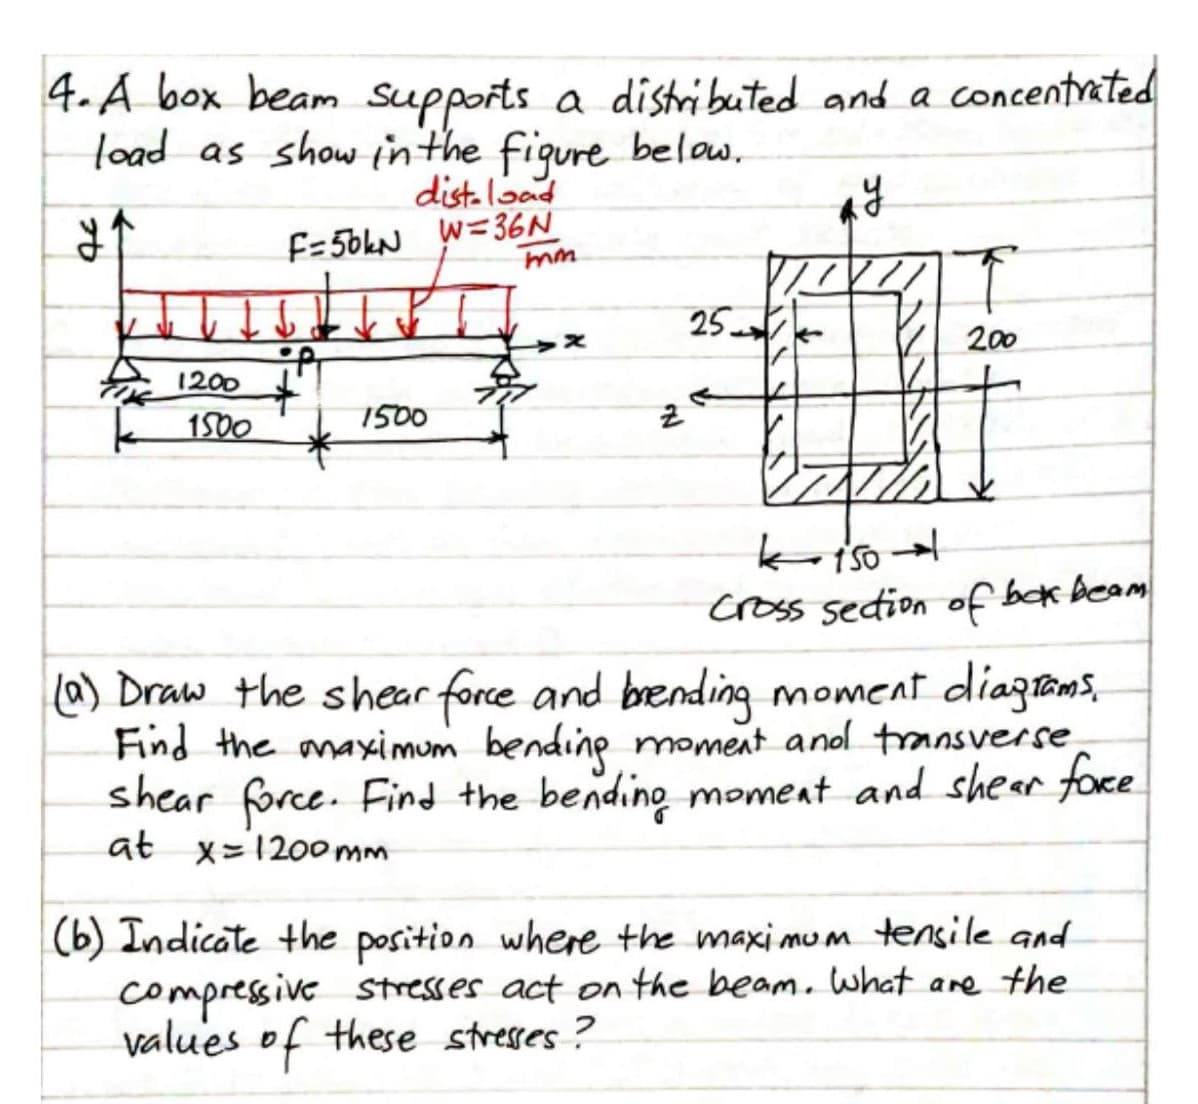 4. A box beam supports a distributed and a concentrated
load as show in the figure below.
dist. load
y
F=50kN
w=36N
mm
y
x
P
25
200
1200
1500
1500
z
150
cross section of box beam
(a) Draw the shear force and bending moment diagrams.
Find the maximum bending moment and transverse
shear force. Find the bending moment and shear force
at x=1200mm
(b) Indicate the position where the maximum tensile and
compressive stresses act on the beam. What are the
values of these stresses?